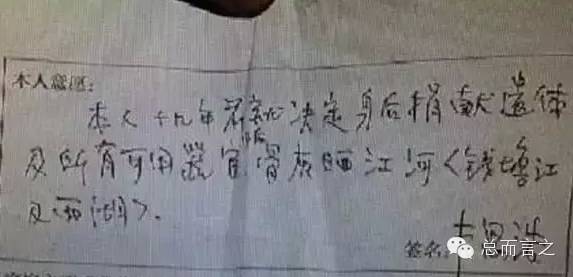 本人意愿:
本人十九年前就决定身后捐献遗体
及所有可用器官后骨灰洒江河<钱塘江
及西湖>.
签名:
总而言之